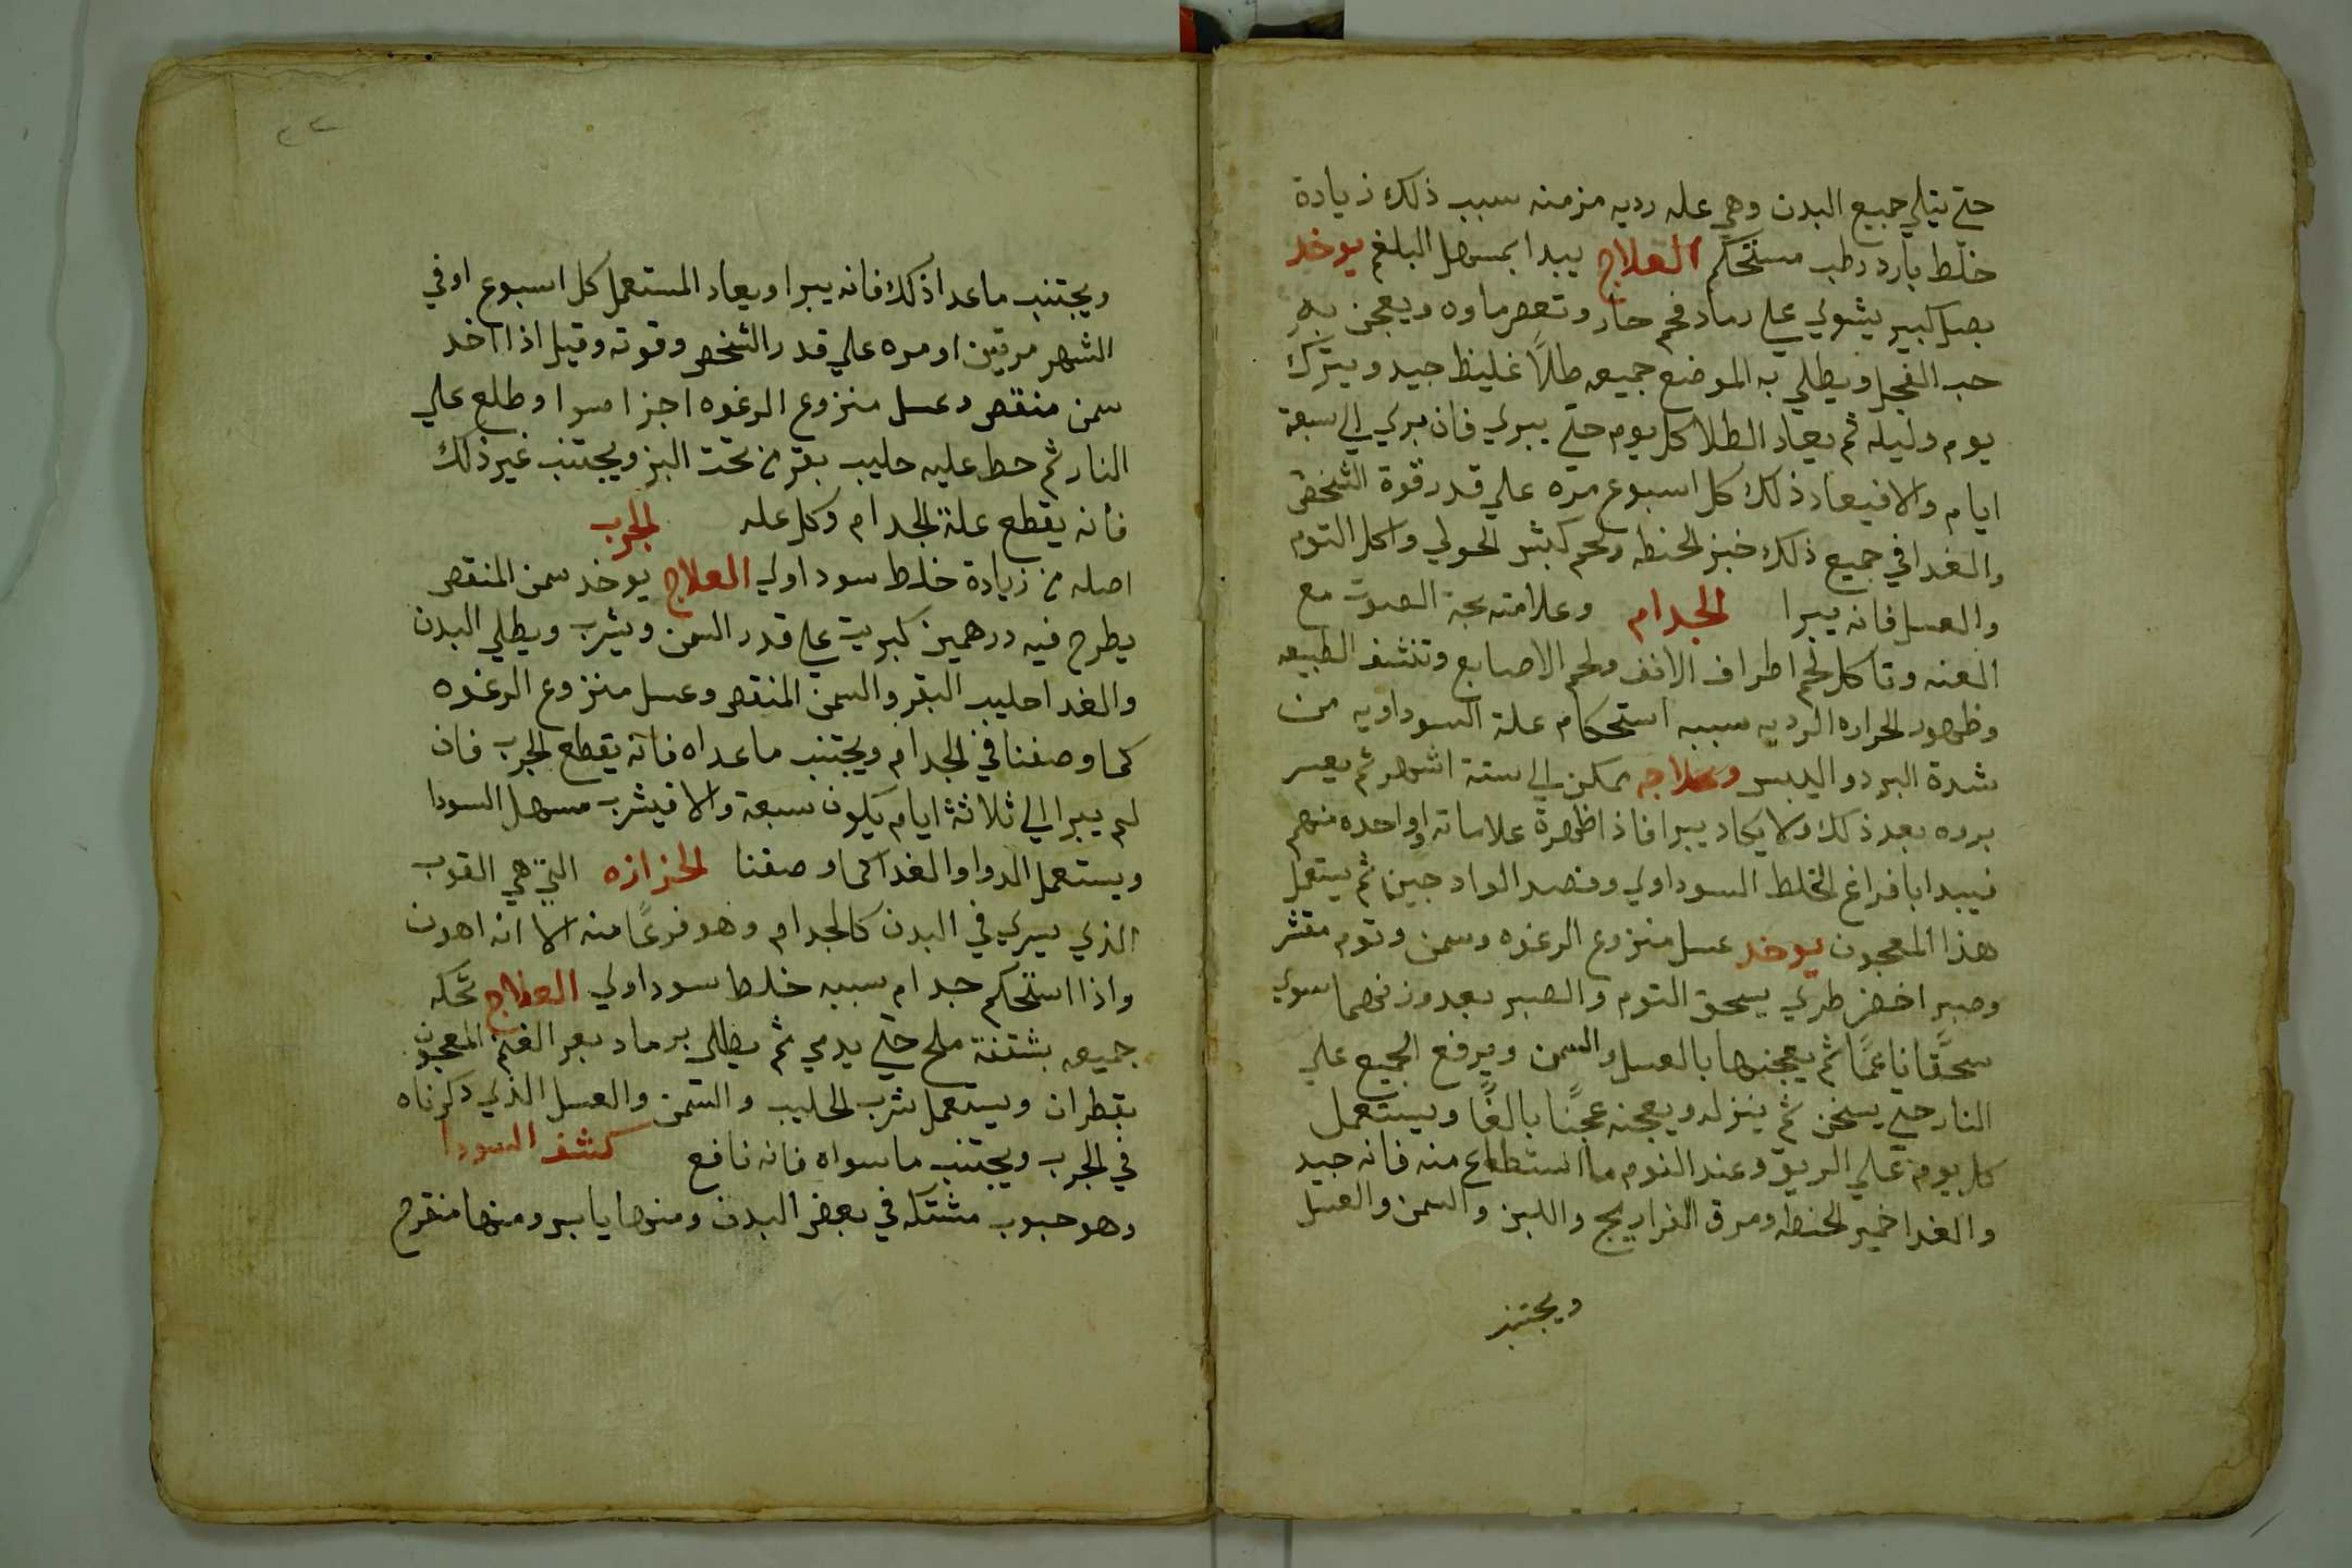 حتي يتلي جميع البدن وهي عله رديه مزمنه سبب ذلك زيادة
خلط بارد رطب مستحكم العلاج يبدا بمسهل البلغم يوخد
بصل كبير يشوي علي رماد فحم حار وتعصر ماوه ويعجن به
حب الفجل ويطلي به الموضع جميعه طلاً غليظ جيد ويترك
يوم وليله ثم يعاد الطلا كل يوم حتي يبري فان بري الي سبعة
ايام والا فيعاد ذلك كل اسبوع مره علي قدر قوة الشخص
والغدا في جميع ذلك خبز الحنطه ولحم كبش الحولي واكل التوم
والعسل فانه يبرا الجدام وعلامته بحة الصوت مع
الغنه وتاكل لحم اطراف الانف ولحم الاصابع وتنشف الطبيعه
وظهور الحراره الرديه سببه استحكام علة السوداويه من
شدة البرد واليبس وعلاجه يمكن الي ستة اشهر ثم يعسر
برده بعد ذلك ولا يكاد يبرا فاذا ظهرة علاماته او واحده منهم
فيبدا بافراغ الخلط السوداوي وفصد الوادجين ثم يستعمل
هذا المعجون يوخد عسل منزوع الرغوه وسمن وتوم مقشر
وصبر اخضر طري يسحق التوم والصبر بعد وزنهما سوي
سحقًا ناعمًا ثم يعجنها بالعسل والسمن ويرفع الجميع علي
النار حتي يسخن ثم ينزله ويعجنه عجنًا بالغًا ويستعمل
كل يوم علي الريق وعند النوم ما استطاع منه فانه جيد
والغدا خمير الحنطه ومرق الفراريج واللبن والسمن والعسل
ويجتنب
٢٢
ويجتنب ما عدا ذلك فانه يبرا ويعاد المستعمل كل اسبوع او في
الشهر مرتين او مره علي قدر الشخص وقوته وقيل اذا اخد
سمن منقص وعسل منزوع الرغوه اجزا سوا وطلع علي
النار ثم حط عليه حليب بقر من تحت البز ويجتنب غير ذلك
فانه يقطع علة الجدام وكل عله الجرب
اصله من زيادة خلط سوداوي العلاج يوخد سمن المنقص
يطرح فيه درهمين كبريت علي قدر السمن ويشرب ويطلي البدن
والغدا حليب البقر والسمن المنقص وعسل منزوع الرغوه
كما وصفنا في الجدام ويجتنب ما عداه فانه يقطع الجرب فان
لم يبرا الي ثلاثة ايام يكون سبعة والا فيشرب مسهل السودا
ويستعمل الدوا والغدا كما وصفنا الحزازه التي هي القوب
الذي يسري في البدن كالجدام وهو فرعًا منه الا انه اهون
واذا استحكم جدام سببه خلط سوداوي العلاج تحكه
جميعه بشتفة ملح حتي يدمي ثم يطلي برماد بعر الغنم المعجون
بقطران ويستعمل شرب الحليب والسمن والعسل الذي دكرناه
في الجرب ويجتنب ما سواه فانه نافع كشف السودا
وهو حبوب مشتكه في بعض البدن ومنها يابس ومنها منقرح